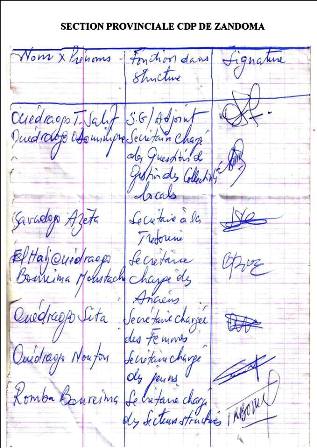 SECTION PROVINCIALE CDP DE ZANDOMA
Nom x Prénoms Fonction dans Signature
structure
Ouédraogo T. Salif S.G/Adjoint
Ouédraogo Secrétaire chargé
des Questions de
Gestion des Collectivités
locales
Savadogo Azèta Secrétaire à la
Trésorerie
El Hadj Ouédraogo Secrétaire
Boureima Moustach chargé des
Anciens
Ouédraogo Sita Secrétaire chargée
des Femmes
Ouédraogo Secrétaire chargé
des jeunes
Romba Boureima Secrétaire chargé
des Secteurs structurés